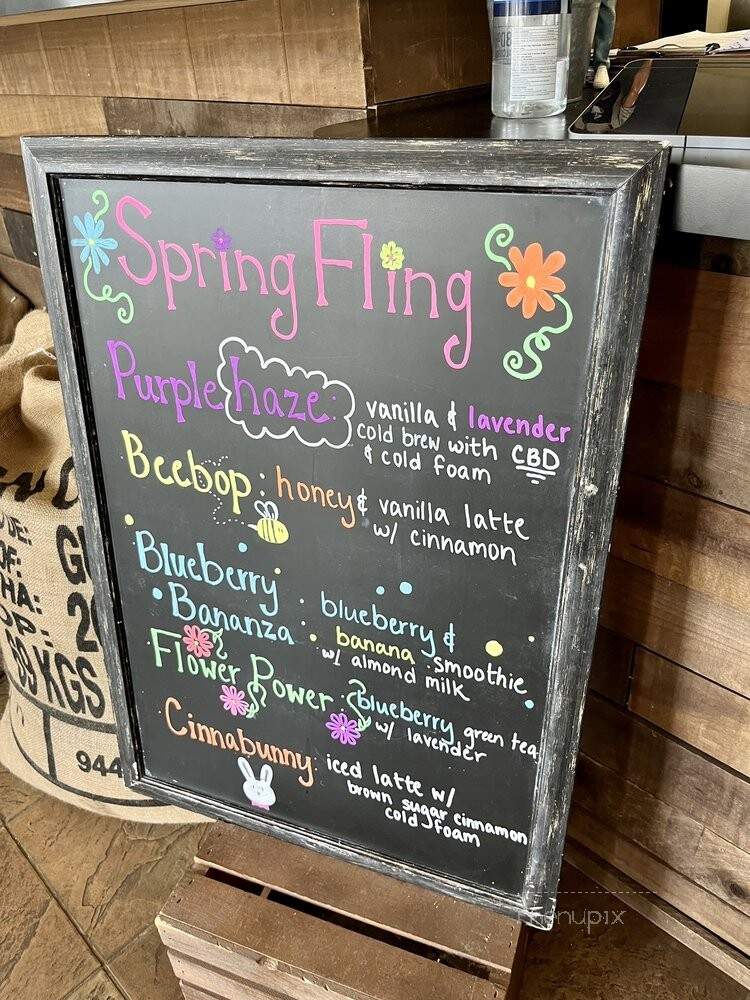 Spring Fling
Purple haze: vanilla & lavender
cold brew with CBD
& cold foam
Beebop: honey & vanilla latte
w/ cinnamon
Blueberry
Bananza: blueberry &
banana smoothie
w/ almond milk
Flower Power: Blueberry green tea
w/ lavender
Cinnabunny: iced latte w/
brown sugar cinnamon
cold foam
KGS
944
menupix